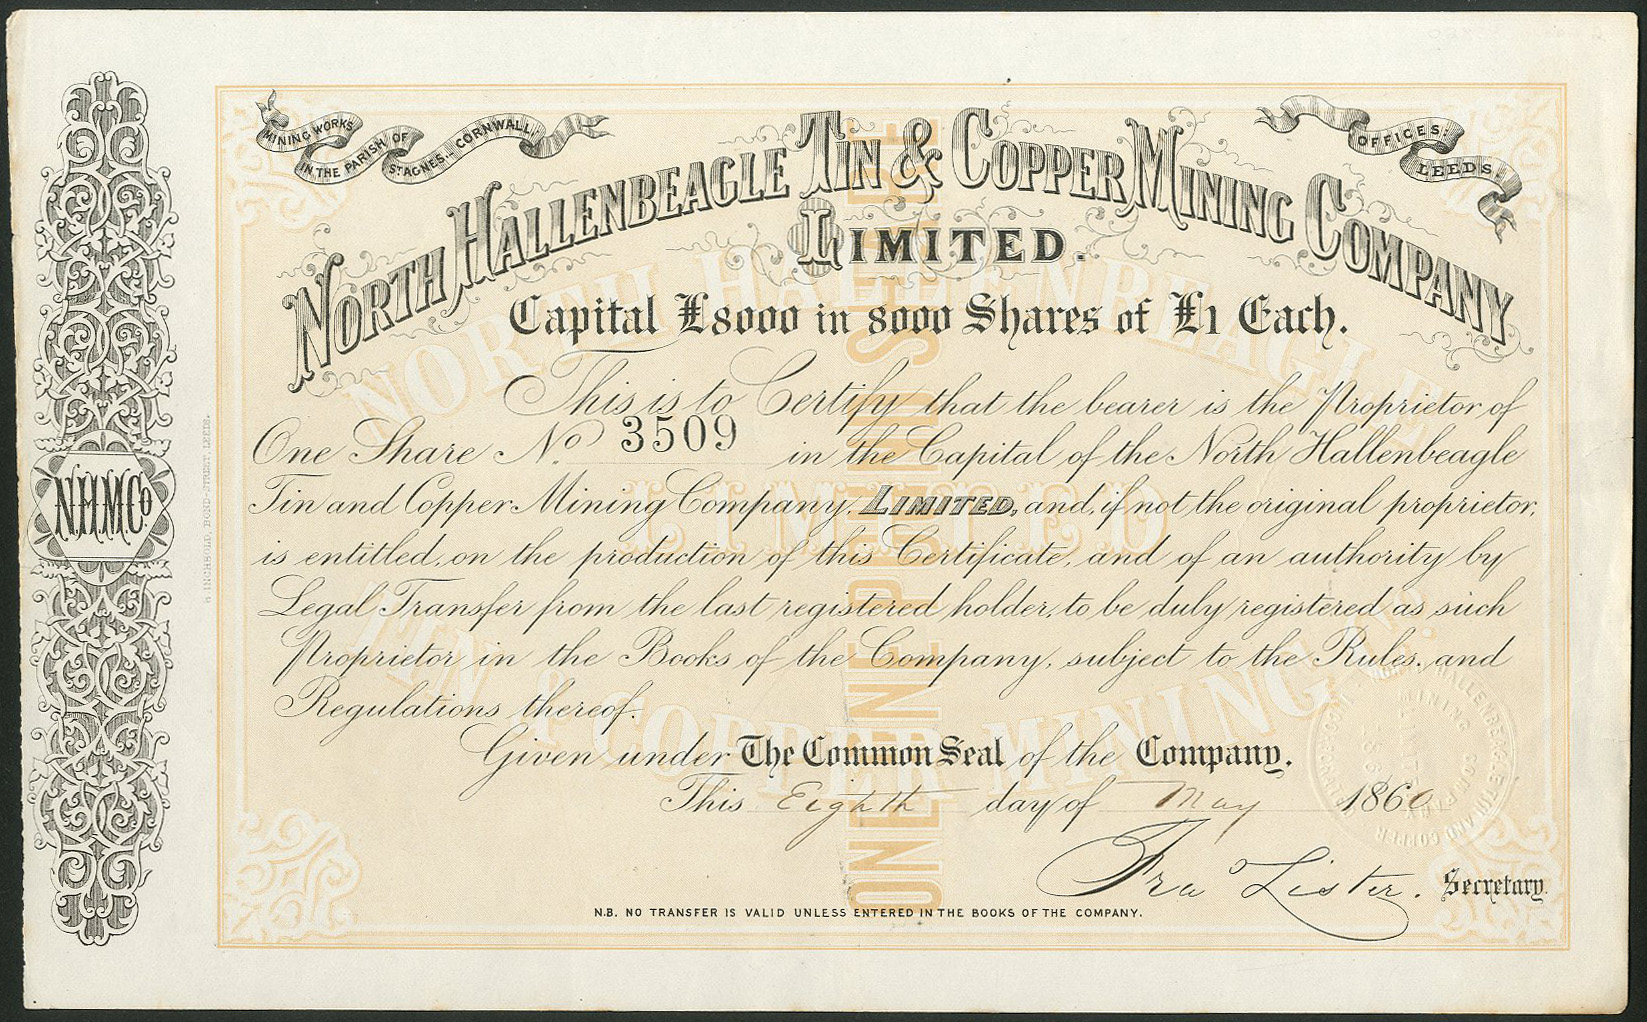 MINING WORKS
IN THE PARISH OF
ST AGNES... CORNWALL.
OFFICES:
LEEDS.
NORTH HALLENBEAGLE TIN & COPPER MINING COMPANY
LIMITED.
Capital £8000 in 8000 Shares of £1 Each.
This is to Certify that the bearer is the Proprietor of
One Share No. 3509 in the Capital of the North Hallenbeagle
Tin and Copper Mining Company, LIMITED, and, if not the original proprietor,
is entitled, on the production of this Certificate, and of an authority by
Legal Transfer from the last registered holder, to be duly registered as such
Proprietor in the Books of the Company, subject to the Rules, and
Regulations thereof.
Given under The Common Seal of the Company.
This Eighth day of May 1860
Fras Lister. Secretary.
N.B. NO TRANSFER IS VALID UNLESS ENTERED IN THE BOOKS OF THE COMPANY.
N.H.M.Co.
H INCHBOLD, BOND-STREET, LEEDS.
NORTH HALLENBEAGLE
LIMITED
TIN & COPPER MINING Co.
ONE POUND SHARE
NORTH HALLENBEAGLE TIN AND COPPER
MINING COMPANY
LIMITED